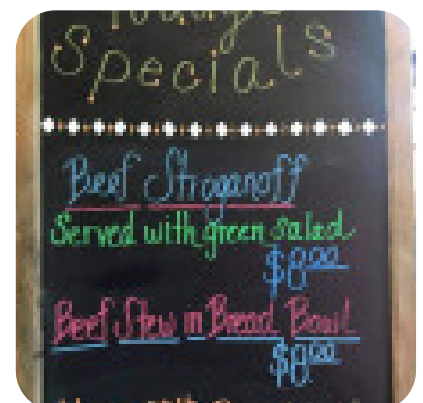 Today's
Specials
Beef Stroganoff
Served with green salad
$8.00
Beef Stew in Bread Bowl
$8.00